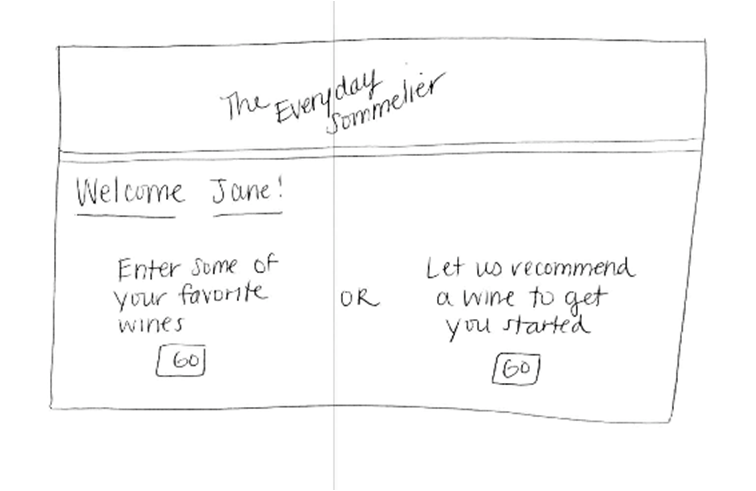 The Everyday
Sommelier
Welcome Jane!
Enter some of
your favorite
wines
GO
OR
Let us recommend
a wine to get
you started
GO